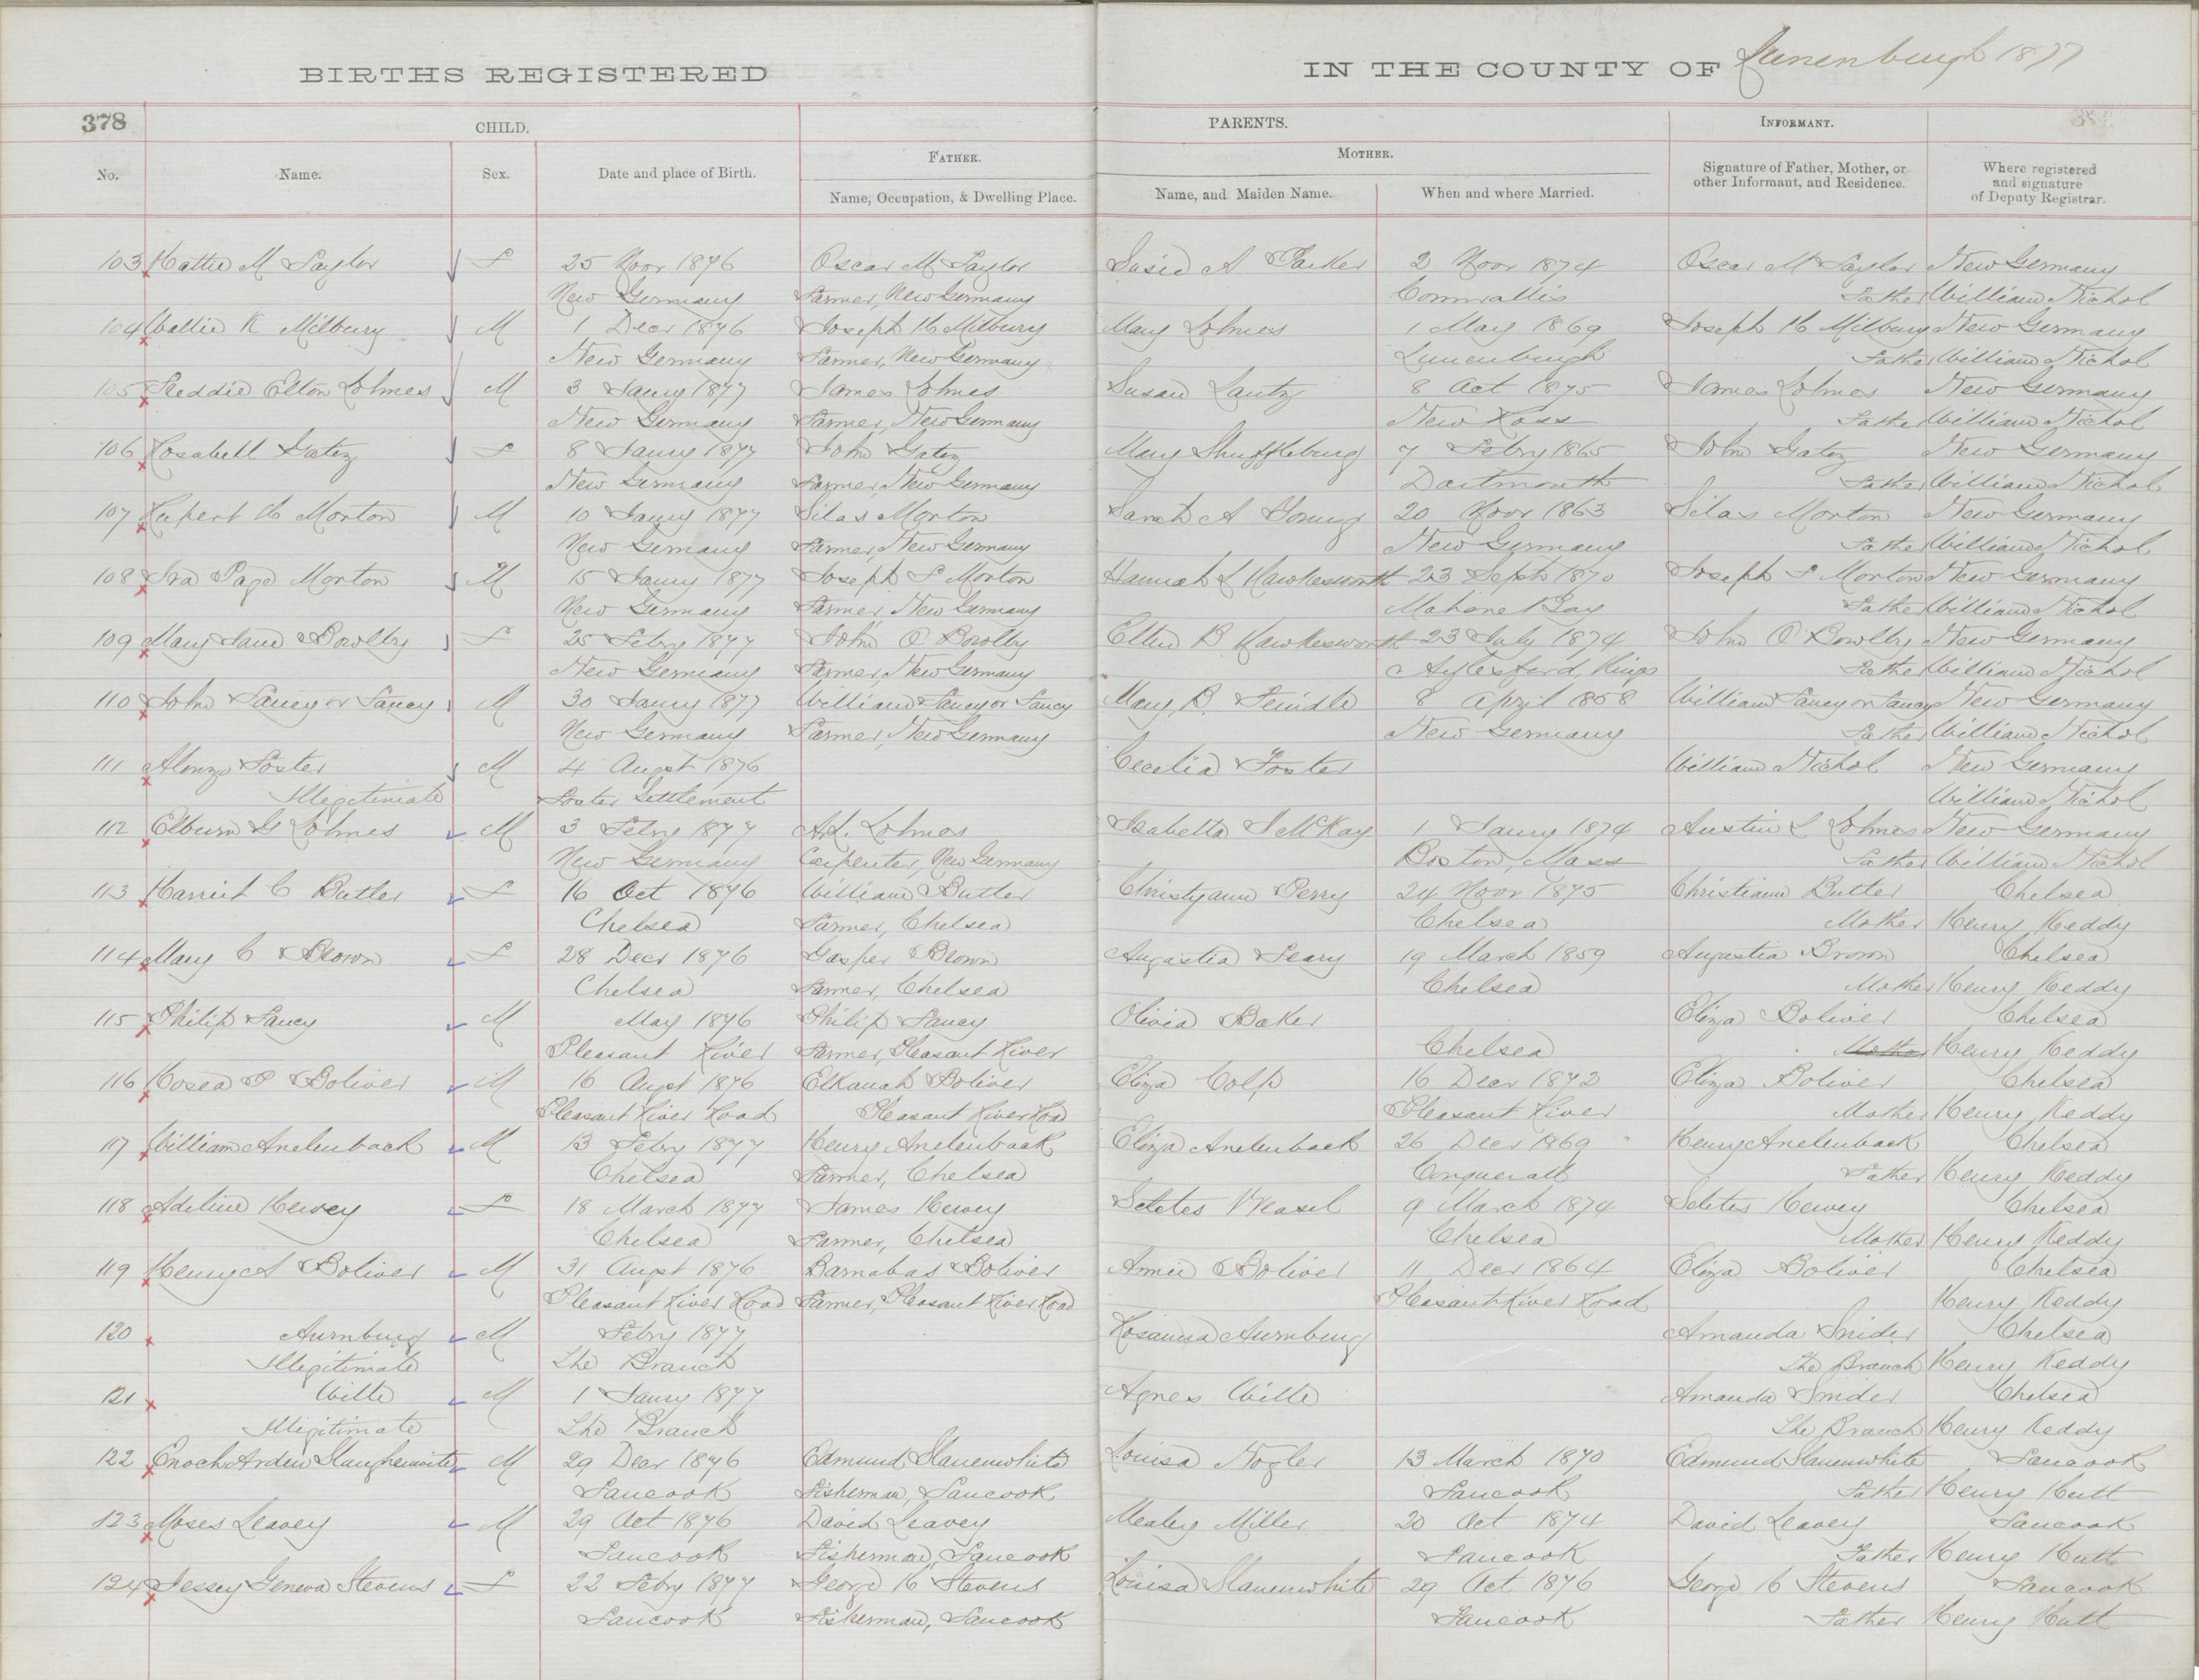 BIRTHS REGISTERED IN THE COUNTY OF Lunenburgh 1877
378 CHILD. PARENTS. INFORMANT.
FATHER. MOTHER.
No. Name. Sex. Date and place of Birth. Name, Occupation, & Dwelling Place. Name, and Maiden Name. When and where Married. Signature of Father, Mother, or other Informant, and Residence. Where registered and signature of Deputy Registrar.
103 Hattie M Saylor F 25 Novr 1876 Oscar M Saylor Susie A Parker 2 Novr 1874 Oscar M Saylor New Germany
New Germany Farmer, New Germany Cornwallis Father William Nichol
104 Wallie R Milbury M 1 Decr 1876 Joseph H Milbury Mary Lohnes 1 May 1869 Joseph H Milbury New Germany
New Germany Farmer, New Germany Lunenburgh Father William Nichol
105 Freddie Elton Lohnes M 3 Jany 1877 James Lohnes Susan Lantz 8 Oct 1875 James Lohnes New Germany
New Germany Farmer, New Germany New Ross Father William Nichol
106 Rosabell Gatez F 8 Jany 1877 John Gatez Mary Shuffleburg 7 Febry 1865 John Gatez New Germany
New Germany Farmer, New Germany Dartmouth Father William Nichol
107 Rupert H Morton M 10 Jany 1877 Silas Morton Sarah A Young 20 Novr 1863 Silas Morton New Germany
New Germany Farmer, New Germany New Germany Father William Nichol
108 Ira Page Morton M 15 Jany 1877 Joseph F Morton Hannah L Hawkesworth 23 Septr 1870 Joseph F Morton New Germany
New Germany Farmer, New Germany Mahone Bay Father William Nichol
109 Mary Jane Bowlby F 25 Febry 1877 John O Bowlby Ellen B Hawkesworth 23 July 1874 John O Bowlby New Germany
New Germany Farmer, New Germany Aylesford, Kings Father William Nichol
110 John Fancy or Fancy M 30 Jany 1877 William Fancy or Fancy Mary B. Feindle 8 April 1858 William Fancy or Fancy New Germany
New Germany Farmer, New Germany New Germany Father William Nichol
111 Alonzo Foster M 4 Augst 1876 Cecelia Foster William Nichol New Germany
Illegitimate Foster Settlement William Nichol
112 Elburn G Lohnes M 3 Febry 1877 A.L. Lohnes Isabella S McKay 1 Jany 1874 Austin L Lohnes New Germany
New Germany Carpenter, New Germany Boston, Mass Father William Nichol
113 Harriet C Butler F 16 Oct 1876 William Butler Christyann Perry 24 Novr 1875 Christiann Butler Chelsea
Chelsea Farmer, Chelsea Chelsea Mother Henry Keddy
114 Mary C Brown F 28 Decr 1876 Gasper Brown Augustia Seary 19 March 1859 Augustia Brown Chelsea
Chelsea Farmer, Chelsea Chelsea Mother Henry Keddy
115 Philip Fancy M May 1876 Philip Fancy Olivia Baker Eliza Boliver Chelsea
Pleasant River Farmer, Pleasant River Chelsea Mother Henry Keddy
116 Hosea P Boliver M 16 Augst 1876 Elkanah Boliver Eliza Colp 16 Decr 1872 Eliza Boliver Chelsea
Pleasant River Road Pleasant River Road Pleasant River Mother Henry Keddy
117 William Anelenback M 13 Febry 1877 Henry Anelenback Eliza Anelenback 26 Decr 1869 Henry Anelenback Chelsea
Chelsea Farmer, Chelsea Conquerall Father Henry Keddy
118 Adeline Hewey F 18 March 1877 James Hewey Seletes Weasel 9 March 1874 Seletes Hewey Chelsea
Chelsea Farmer, Chelsea Chelsea Mother Henry Keddy
119 Henry A Boliver M 31 Augst 1876 Barnabas Boliver Annie Boliver 11 Decr 1864 Eliza Boliver Chelsea
Pleasant River Road Farmer, Pleasant River Road Pleasant River Road Henry Keddy
120 Aurnburg M Febry 1877 Rosanna Aurnburg Amanda Snider Chelsea
Illegitimate The Branch The Branch Henry Keddy
121 Wille M 1 Jany 1877 Agnes Wille Amanda Snider Chelsea
Illegitimate The Branch The Branch Henry Keddy
122 Enoch Arden Slaughenwite M 29 Decr 1876 Edmund Slauenwhite Louisa Nogler 13 March 1870 Edmund Slauenwhite Tancook
Tancook Fisherman, Tancook Tancook Father Henry Hutt
123 Moses Leavey M 29 Oct 1876 David Leavey Mealey Miller 20 Oct 1874 David Leavey Tancook
Tancook Fisherman, Tancook Tancook Father Henry Hutt
124 Jessey Geneva Stevens F 22 Febry 1877 George H Stevens Louisa Slauenwhite 29 Oct 1876 George H Stevens Tancook
Tancook Fisherman, Tancook Tancook Father Henry Hutt